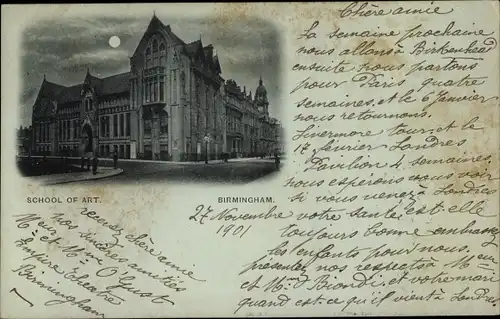 Chère amie
La semaine prochaine
nous allons à Birkenhead
ensuite nous partons
pour Paris quatre
semaines, et le 6 Janvier
nous retournons
tour et le
17 février Londres
Pavilion 4 semaines,
nous espérons vous voir
si vous venez à Londres
votre santé est-elle
toujours bonne embrassez
les enfants pour nous.
présentez nos respects à Mr
et Mme Biondi, et votre mari
quand est-ce qu'il vient à Londres
SCHOOL OF ART.
BIRMINGHAM.
27 Novembre
1901
recevez chère amie
nos sincères amitiés
Mr et Mme O'Gust
Empire Theatre
Birmingham